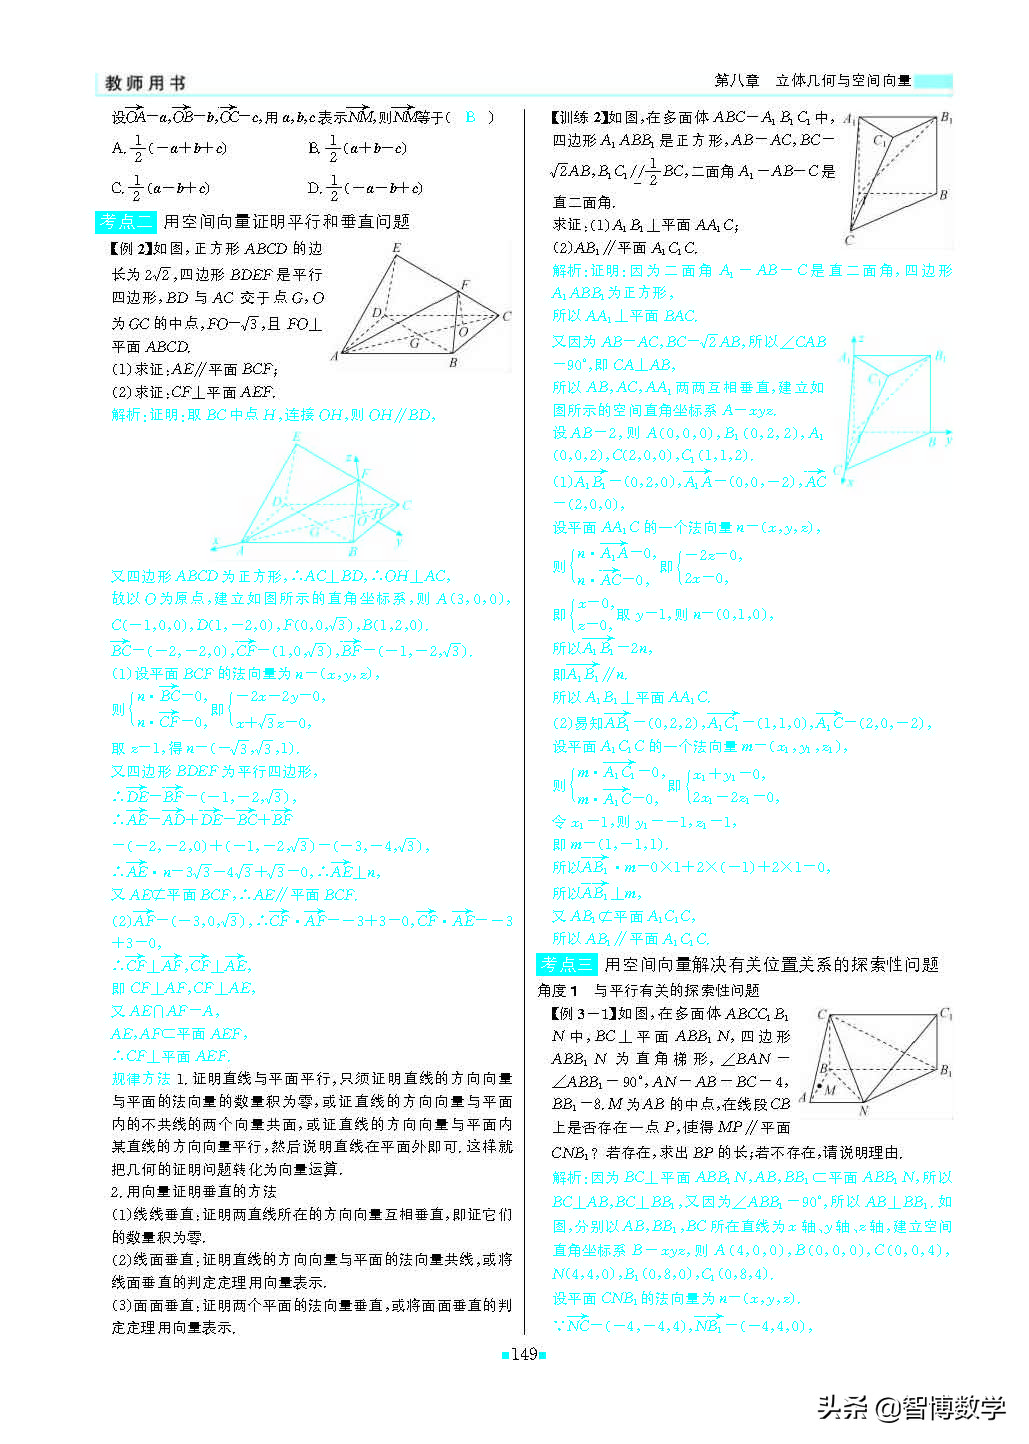 教师用书
第八章　立体几何与空间向量
设OA=a,OB=b,OC=c,用a,b,c表示NM,则NM等于( B )
A.1/2(-a+b+c)　B.1/2(a+b-c)
C.1/2(a-b+c)　D.1/2(-a-b+c)
考点二 用空间向量证明平行和垂直问题
【例2】如图,正方形ABCD的边
长为2√2,四边形BDEF是平行
四边形,BD与AC交于点G,O
为GC的中点,FO=√3,且FO⊥
平面ABCD.
(1)求证:AE∥平面BCF;
(2)求证:CF⊥平面AEF.
解析:证明:取BC中点H,连接OH,则OH∥BD,
又四边形ABCD为正方形,∴AC⊥BD,∴OH⊥AC,
故以O为原点,建立如图所示的直角坐标系,则A(3,0,0),
C(-1,0,0),D(1,-2,0),F(0,0,√3),B(1,2,0).
BC=(-2,-2,0),CF=(1,0,√3),BF=(-1,-2,√3).
(1)设平面BCF的法向量为n=(x,y,z),
则{n·BC=0, n·CF=0, 即{-2x-2y=0, x+√3z=0,
取z=1,得n=(-√3,√3,1).
又四边形BDEF为平行四边形,
∴DE=BF=(-1,-2,√3),
∴AE=AD+DE=BC+BF
=(-2,-2,0)+(-1,-2,√3)=(-3,-4,√3),
∴AE·n=3√3-4√3+√3=0,∴AE⊥n,
又AE⊄平面BCF,∴AE∥平面BCF.
(2)AF=(-3,0,√3),∴CF·AF=-3+3=0,CF·AE=-3
+3=0,
∴CF⊥AF,CF⊥AE,
即CF⊥AF,CF⊥AE,
又AE∩AF=A,
AE,AF⊂平面AEF,
∴CF⊥平面AEF.
规律方法 1.证明直线与平面平行,只须证明直线的方向向量
与平面的法向量的数量积为零,或证直线的方向向量与平面
内的不共线的两个向量共面,或证直线的方向向量与平面内
某直线的方向向量平行,然后说明直线在平面外即可.这样就
把几何的证明问题转化为向量运算.
2.用向量证明垂直的方法
(1)线线垂直:证明两直线所在的方向向量互相垂直,即证它们
的数量积为零.
(2)线面垂直:证明直线的方向向量与平面的法向量共线,或将
线面垂直的判定定理用向量表示.
(3)面面垂直:证明两个平面的法向量垂直,或将面面垂直的判
定定理用向量表示.
【训练2】如图,在多面体ABC-A₁B₁C₁中,
四边形A₁ABB₁是正方形,AB=AC,BC=
√2AB,B₁C₁∥=1/2BC,二面角A₁-AB-C是
直二面角.
求证:(1)A₁B₁⊥平面AA₁C;
(2)AB₁∥平面A₁C₁C.
解析:证明:因为二面角A₁-AB-C是直二面角,四边形
A₁ABB₁为正方形,
所以AA₁⊥平面BAC.
又因为AB=AC,BC=√2AB,所以∠CAB
=90°,即CA⊥AB,
所以AB,AC,AA₁两两互相垂直,建立如
图所示的空间直角坐标系A-xyz.
设AB=2,则A(0,0,0),B₁(0,2,2),A₁
(0,0,2),C(2,0,0),C₁(1,1,2).
(1)A₁B₁=(0,2,0),A₁A=(0,0,-2),AC
=(2,0,0),
设平面AA₁C的一个法向量n=(x,y,z),
则{n·A₁A=0, n·AC=0, 即{-2z=0, 2x=0,
即{x=0, z=0, 取y=1,则n=(0,1,0),
所以A₁B₁=2n,
即A₁B₁∥n.
所以A₁B₁⊥平面AA₁C.
(2)易知AB₁=(0,2,2),A₁C₁=(1,1,0),A₁C=(2,0,-2),
设平面A₁C₁C的一个法向量m=(x₁,y₁,z₁),
则{m·A₁C₁=0, m·A₁C=0, 即{x₁+y₁=0, 2x₁-2z₁=0,
令x₁=1,则y₁=-1,z₁=1,
即m=(1,-1,1).
所以AB₁·m=0×1+2×(-1)+2×1=0,
所以AB₁⊥m,
又AB₁⊄平面A₁C₁C,
所以AB₁∥平面A₁C₁C.
考点三 用空间向量解决有关位置关系的探索性问题
角度1　与平行有关的探索性问题
【例3-1】如图,在多面体ABCC₁B₁
N中,BC⊥平面ABB₁N,四边形
ABB₁N为直角梯形,∠BAN=
∠ABB₁=90°,AN=AB=BC=4,
BB₁=8.M为AB的中点,在线段CB
上是否存在一点P,使得MP∥平面
CNB₁?若存在,求出BP的长;若不存在,请说明理由.
解析:因为BC⊥平面ABB₁N,AB,BB₁⊂平面ABB₁N,所以
BC⊥AB,BC⊥BB₁,又因为∠ABB₁=90°,所以AB⊥BB₁.如
图,分别以AB,BB₁,BC所在直线为x轴、y轴、z轴,建立空间
直角坐标系B-xyz,则A(4,0,0),B(0,0,0),C(0,0,4),
N(4,4,0),B₁(0,8,0),C₁(0,8,4).
设平面CNB₁的法向量为n=(x,y,z).
∵NC=(-4,-4,4),NB₁=(-4,4,0),
149
头条 @智博数学